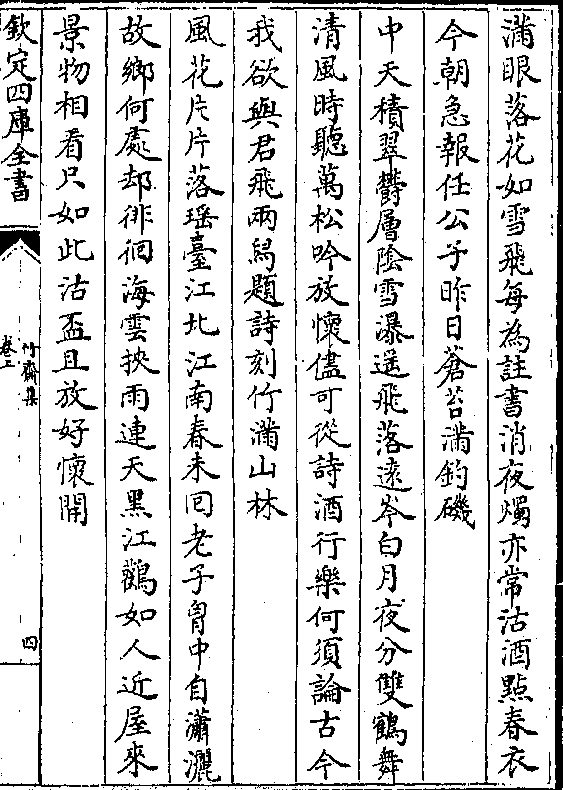 滿眼落花如雪飛每為註書消夜燭亦常沽酒㸃春衣
今朝急報任公子昨日蒼苔滿釣磯
中天積翠欝層陰雪瀑遥飛落逺岑白月夜分雙鶴舞
清風時聽萬松吟放懷儘可從詩酒行樂何須論古今
我欲與君飛兩舄題詩刻竹滿山林
風花片片落瑶臺江北江南春未囘老子胷中自瀟灑
故鄉何處却徘徊海雲挾雨連天黑江鸛如人近屋來
景物相看只如此沽盃且放好懷開
欽定四庫全書
竹齋集
卷上
四